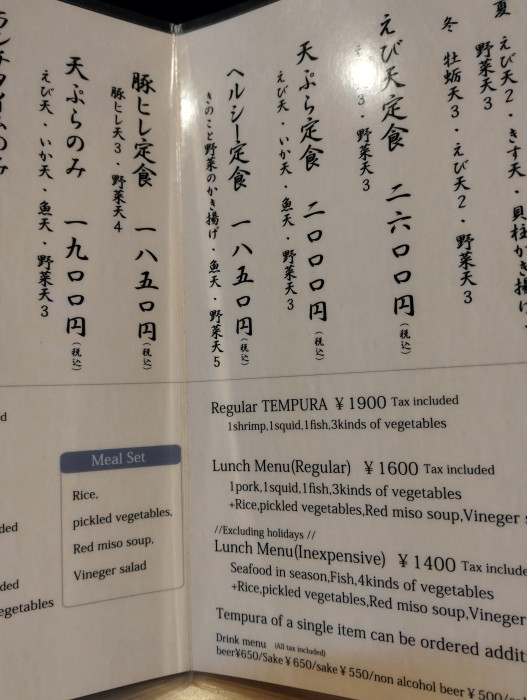 夏 えび天2・きす天・貝柱かき揚げ
野菜天3
冬 牡蛎天3・えび天2・野菜天3
えび天定食 二六〇〇円(税込)
3・野菜天3
天ぷら定食 二〇〇〇円(税込)
えび天・いか天・魚天・野菜天3
ヘルシー定食 一八五〇円(税込)
きのこと野菜のかき揚げ・魚天・野菜天5
豚ヒレ定食 一八五〇円(税込)
豚ヒレ天3・野菜天4
天ぷらのみ 一九〇〇円(税込)
えび天・いか天・魚天・野菜天3
ランチタイムのみ
Regular TEMPURA ¥1900 Tax included
1shrimp,1squid,1fish,3kinds of vegetables
Lunch Menu(Regular) ¥1600 Tax included
1pork,1squid,1fish,3kinds of vegetables
+Rice,pickled vegetables,Red miso soup,Vineger
//Excluding holidays //
Lunch Menu(Inexpensive) ¥1400 Tax include
Seafood in season,Fish,4kinds of vegetables
+Rice,pickled vegetables,Red miso soup,Vineger
Tempura of a single item can be ordered addit
Drink menu (All tax included)
beer¥650/Sake¥650/sake¥550/non alcohol beer¥500/
Meal Set
Rice,
pickled vegetables,
Red miso soup,
Vineger salad
d
ded
ded
egetables